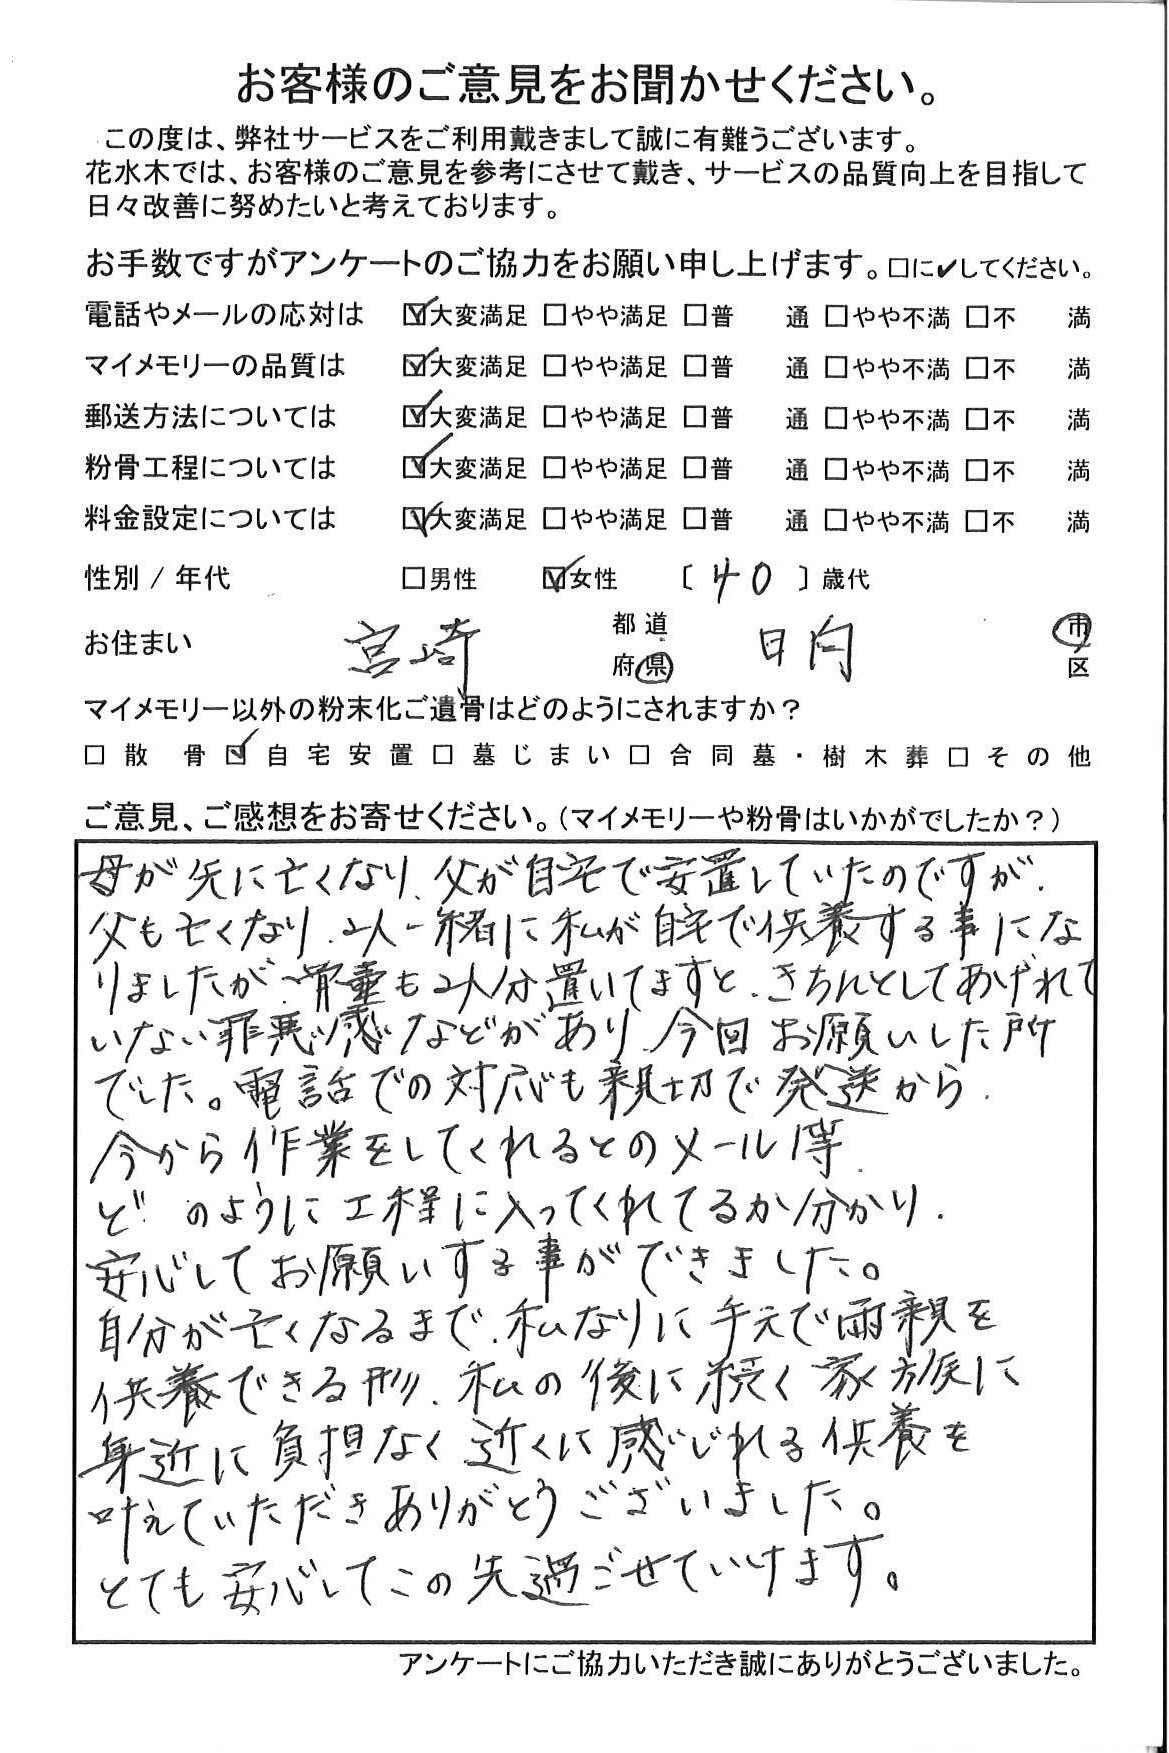 お客様のご意見をお聞かせください。
この度は、弊社サービスをご利用戴きまして誠に有難うございます。
花水木では、お客様のご意見を参考にさせて戴き、サービスの品質向上を目指して
日々改善に努めたいと考えております。
お手数ですがアンケートのご協力をお願い申し上げます。□に✔してください。
電話やメールの応対は ☑大変満足 □やや満足 □普 通 □やや不満 □不 満
マイメモリーの品質は ☑大変満足 □やや満足 □普 通 □やや不満 □不 満
郵送方法については ☑大変満足 □やや満足 □普 通 □やや不満 □不 満
粉骨工程については ☑大変満足 □やや満足 □普 通 □やや不満 □不 満
料金設定については ☑大変満足 □やや満足 □普 通 □やや不満 □不 満
性別 / 年代 □男性 ☑女性 〔 40 〕歳代
お住まい 宮崎 都道府県 日向 市区
マイメモリー以外の粉末化ご遺骨はどのようにされますか？
□ 散 骨 ☑ 自宅安置 □ 墓じまい □ 合同墓・樹木葬 □ その他
ご意見、ご感想をお寄せください。（マイメモリーや粉骨はいかがでしたか？）
母が先に亡くなり、父が自宅で安置していたのですが、
父も亡くなり、2人一緒に私が自宅で供養する事にな
りましたが、骨壷も2人分置いてますと、きちんとしてあげれて
いない罪悪感などがあり、今回お願いした所
でした。電話での対応も親切で発送から、
今から作業をしてくれるとのメール等、
どのように工程に入ってくれてるか分かり、
安心してお願いする事ができました。
自分が亡くなるまで、私なりに手元で両親を
供養できる形、私の後に続く家族に
身近に負担なく近くに感じれる供養を
叶えていただきありがとうございました。
とても安心してこの先過ごせていけます。
アンケートにご協力いただき誠にありがとうございました。